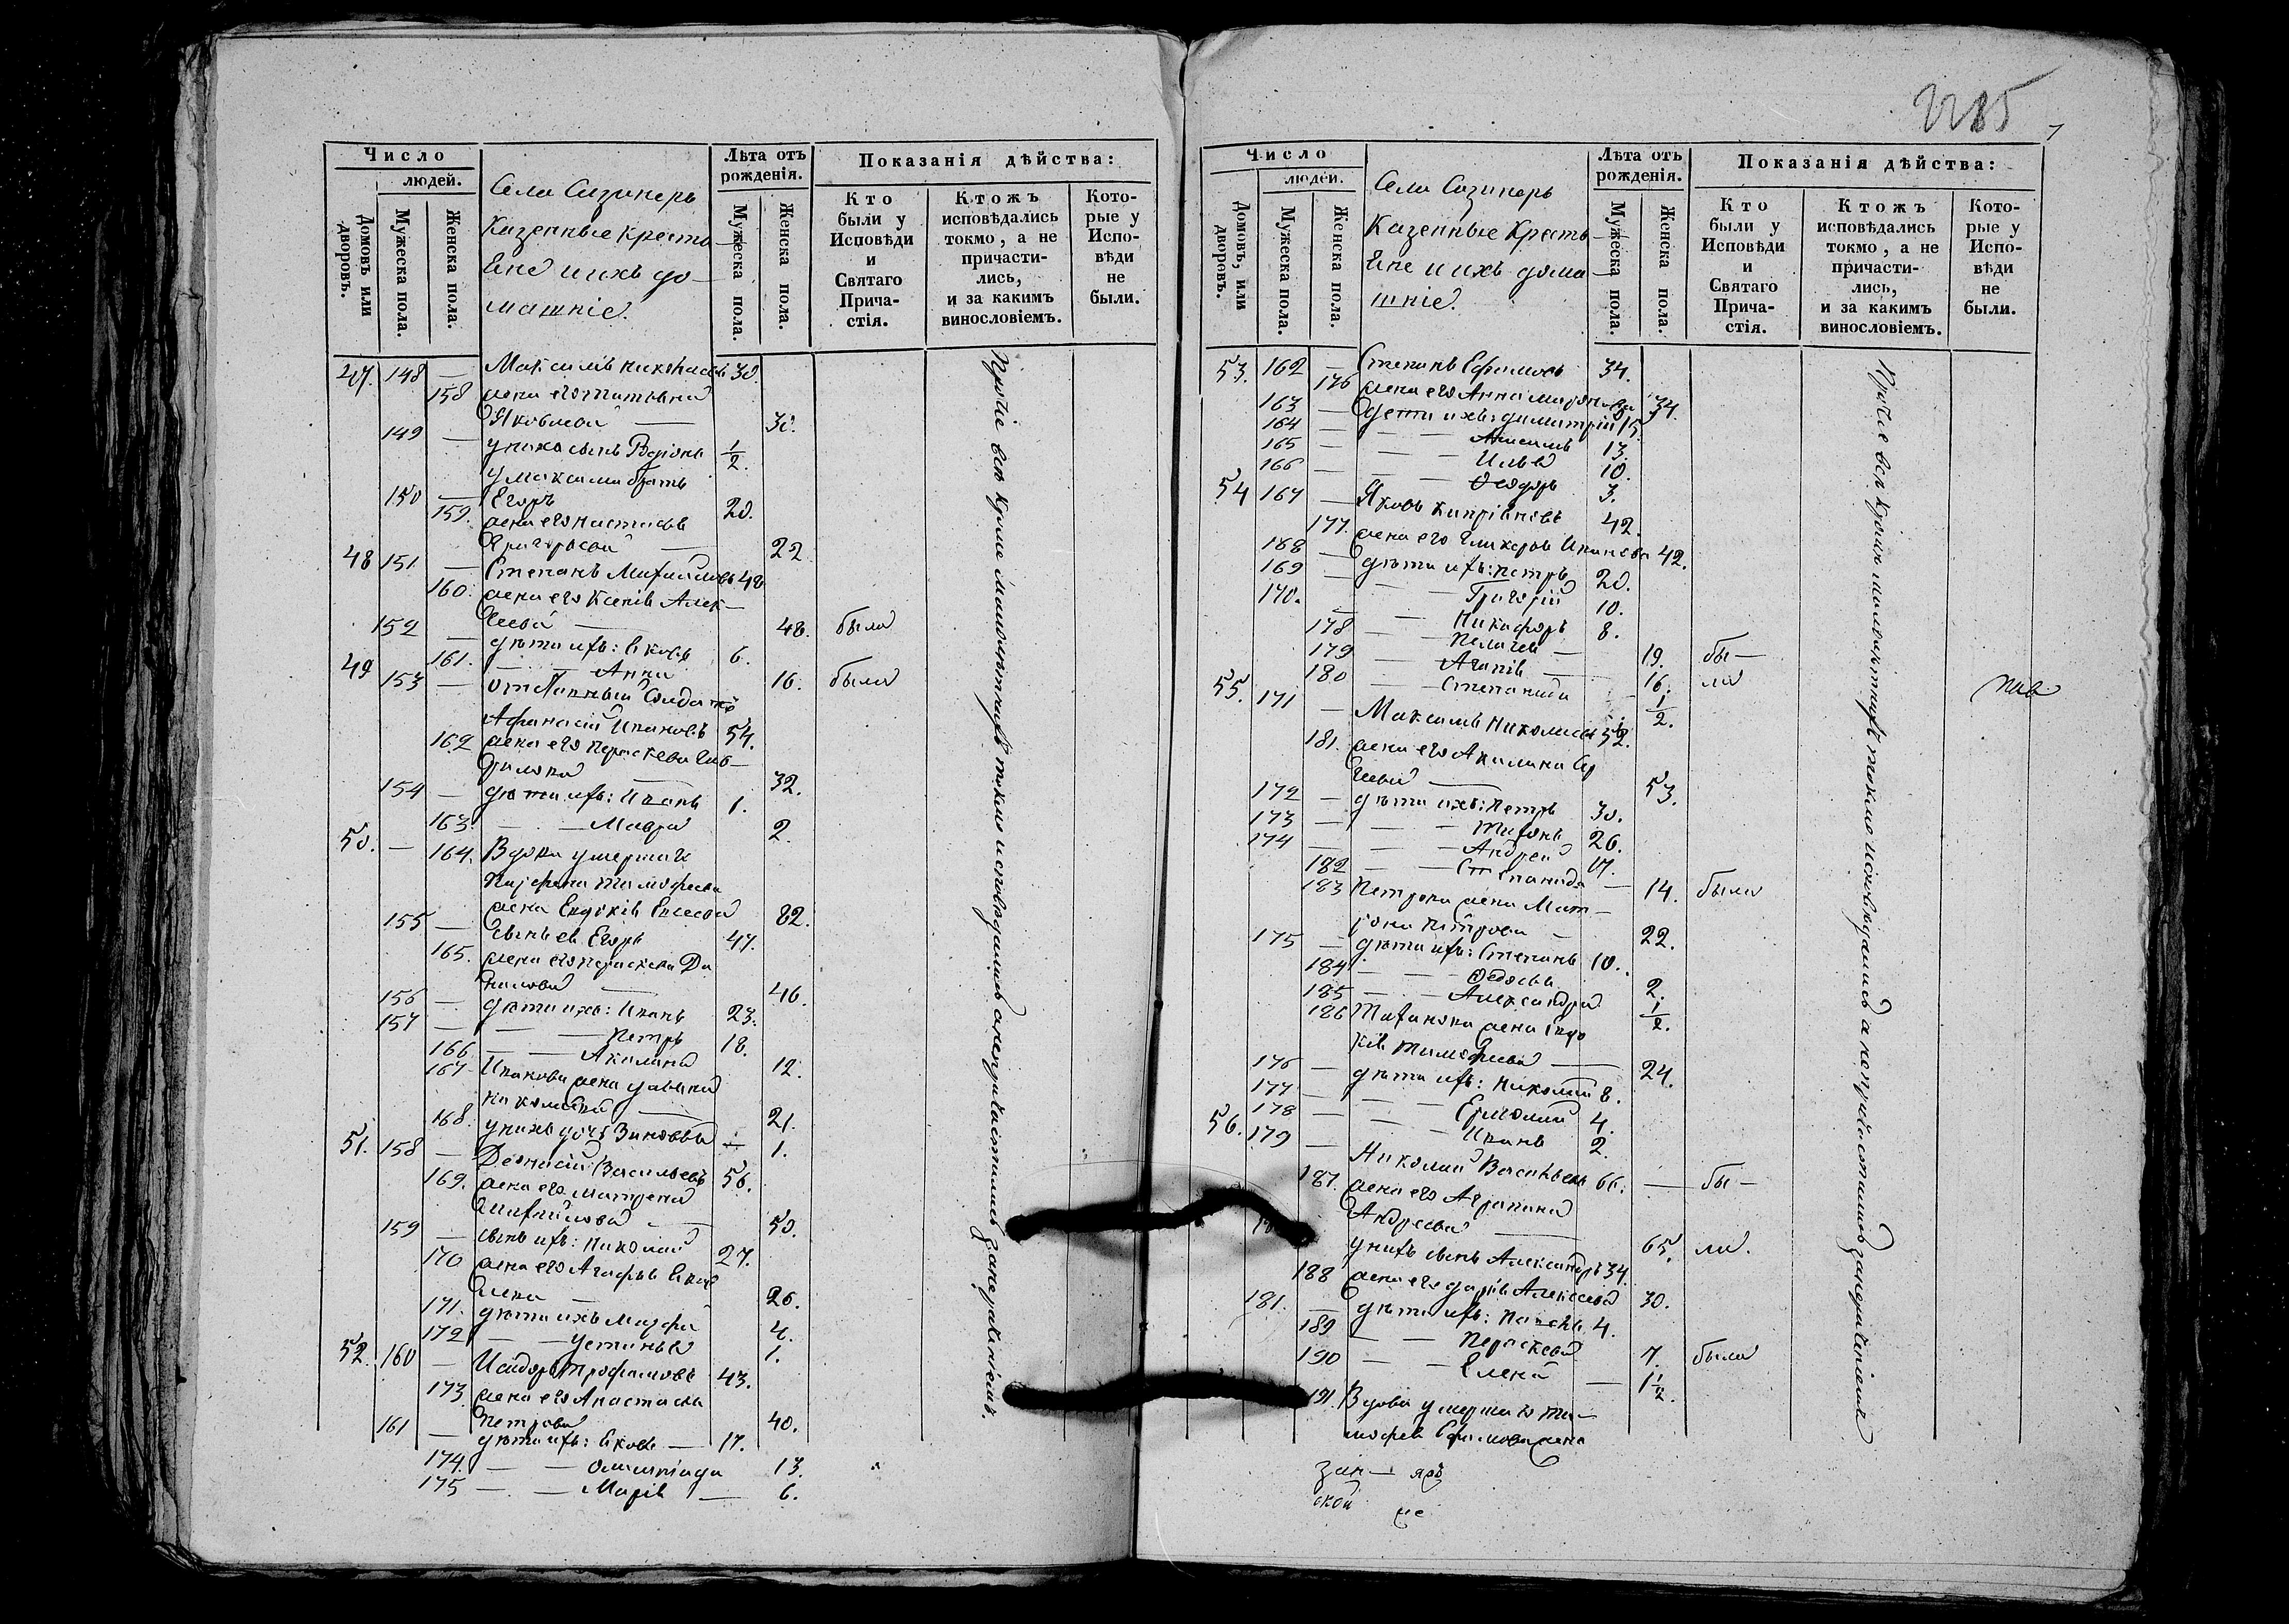 Число
людей.
Домовъ или дворовъ.
Мужеска пола.
Женска пола.
Села Сизнеръ
Казенные крестья
не и ихъ до-
машніе.
Лѣта отъ рожденія.
Мужеска пола.
Женска пола.
Показанія дѣйства:
Кто были у Исповѣди и Святаго Причастія.
Ктожъ исповѣдались токмо, а не причастились, и за какимъ винословіемъ.
Которые у Исповѣди не были.
47. 148 — Максимъ Николаевъ 30.
158 жена его Татьяна
Яковлева — 30.
149 — у нихъ сынъ Родіонъ 1/2.
у Максима братъ
150 — Егоръ 20.
159. жена его Настасья
Григорьева — 22
48 151 — Степанъ Михайловъ 48
160. жена его Ксенія Алек-
сеева — 48. была
152 — дѣти ихъ: Яковъ 6.
161. — — Анна 16. была
49 153 — отставный солдатъ
Афанасій Ивановъ 54.
162 жена его Параскева Гав-
рилова 32.
154 — дѣти ихъ: Иванъ 1.
163. — — Мавра 2.
50. — 164. Вдова умершаго
Парфена Тимофеева
жена Евдокія Елисеева 82.
155 — сынъ ея Егоръ 47.
165. жена его Параскева Да
нилова — 46.
156 — дѣти ихъ: Иванъ 23.
157 — — — Петръ 18.
166 — — Акилина 12.
167 Иванова жена Ульяна
Николаева — 21.
168. у нихъ дочь Зиновья 1.
51. 158 — Деонисій Васильевъ 56.
169. жена его Матрена
Михайлова — 50.
159 — сынъ ихъ: Николай 27.
170 жена его Агафья
— 26.
171. дѣти ихъ Марфа 4.
172 — — Устинья 1.
52. 160 — Исидоръ Трофимовъ 43.
173. жена его Анастасія
Петрова 40.
161 — дѣти ихъ: Яковъ — 17.
174. — — Олимпіада 13.
175 — — Марія — 6.
Прочіе всѣ кроме малолѣтнихъ токмо исповѣдались а не причастились за нераченіемъ.
2285
7
Число
людей.
Домовъ, или дворовъ.
Мужеска пола.
Женска пола.
Села Сизнеръ
Казенные Кресть
яне и ихъ дома
шніе.
Лѣта отъ рожденія.
Мужеска пола.
Женска пола.
Показанія дѣйства:
Кто были у Исповѣди и Святаго Причастія.
Ктожъ исповѣдались токмо, а не причастились, и за какимъ винословіемъ.
Которые у Исповѣди не были.
53. 162 — Степанъ Ефимовъ 34.
176 жена его Анна 34.
163 — дети ихъ: Димитрій 15.
164 — — — Анисимъ 13.
165 — — — Илья 10.
166 — — — Ѳеодоръ 3.
54 167 — Яковъ Кипріановъ 42.
177. жена его Гликерья Иванова 42.
168 — дѣти ихъ: Петръ 20.
169 — — Григорій 10.
170. — — Никифоръ 8.
178 — — Пелагея — 19. бы-
179 — — Агапія — 16. ла
180 — — Степанида 1/2.
55. 171 — Максимъ Николаевъ 52.
181. жена его Акилина Ер
— 53.
172 — дѣти ихъ: Петръ 30.
173 — — — Тихонъ 26.
174 — — — Андрей 17.
182 — — Степанида — 14. была
183 Петрова жена Мат-
рона Петрова — 22.
175 — дѣти ихъ: Степанъ 10.
184 — — Ѳедосья 2.
185 — — Александра 1/2.
186 Тихонова жена Евдо
кія Тимофеева — 24.
176 — дѣти ихъ: Николай 8.
177 — — — Ермолай 4.
178 — — — Иванъ 2.
56. 179 — Николай Васильевъ 66. — бы-
187. жена его Агрипина
Андреева — 65. ли.
у нихъ сынъ Александръ 34.
188 жена его Дарія Алексеева 30.
181. — дѣти ихъ: 4.
189 — — Параскева 7. была
190 — — Елена — 1 1/2.
191. Вдова умершаго Ти-
мофея Ефимова жена
Прочіе всѣ кроме малолѣтнихъ токмо исповѣдались а не причастились за нераченіемъ